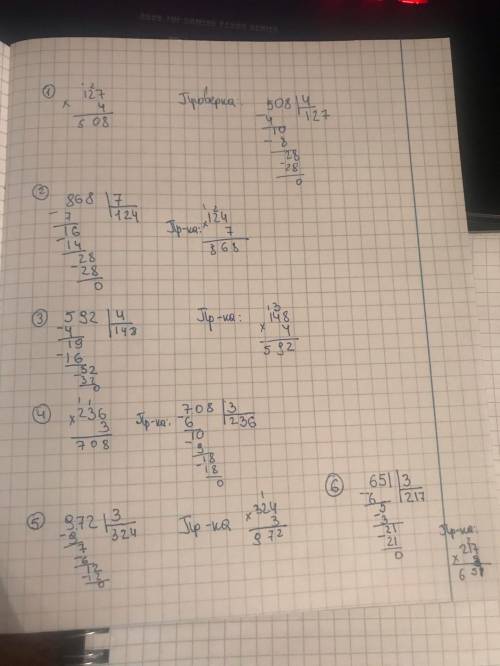 ① 127
× 4
508
Проверка: 508 | 4
127
- 4
10
- 8
28
- 28
0
② 868 | 7
124
- 7
16
- 14
28
- 28
0
Пр-ка: 124
× 7
868
③ 592 | 4
148
- 4
19
- 16
32
- 32
0
Пр-ка: 148
× 4
592
④ 236
× 3
708
Пр-ка: 708 | 3
236
- 6
10
- 9
18
- 18
0
⑤ 972 | 3
324
- 9
7
- 6
12
- 12
0
Пр-ка 324
× 3
972
⑥ 651 | 3
217
- 6
5
- 3
21
- 21
0
Пр-ка:
217
× 3
651